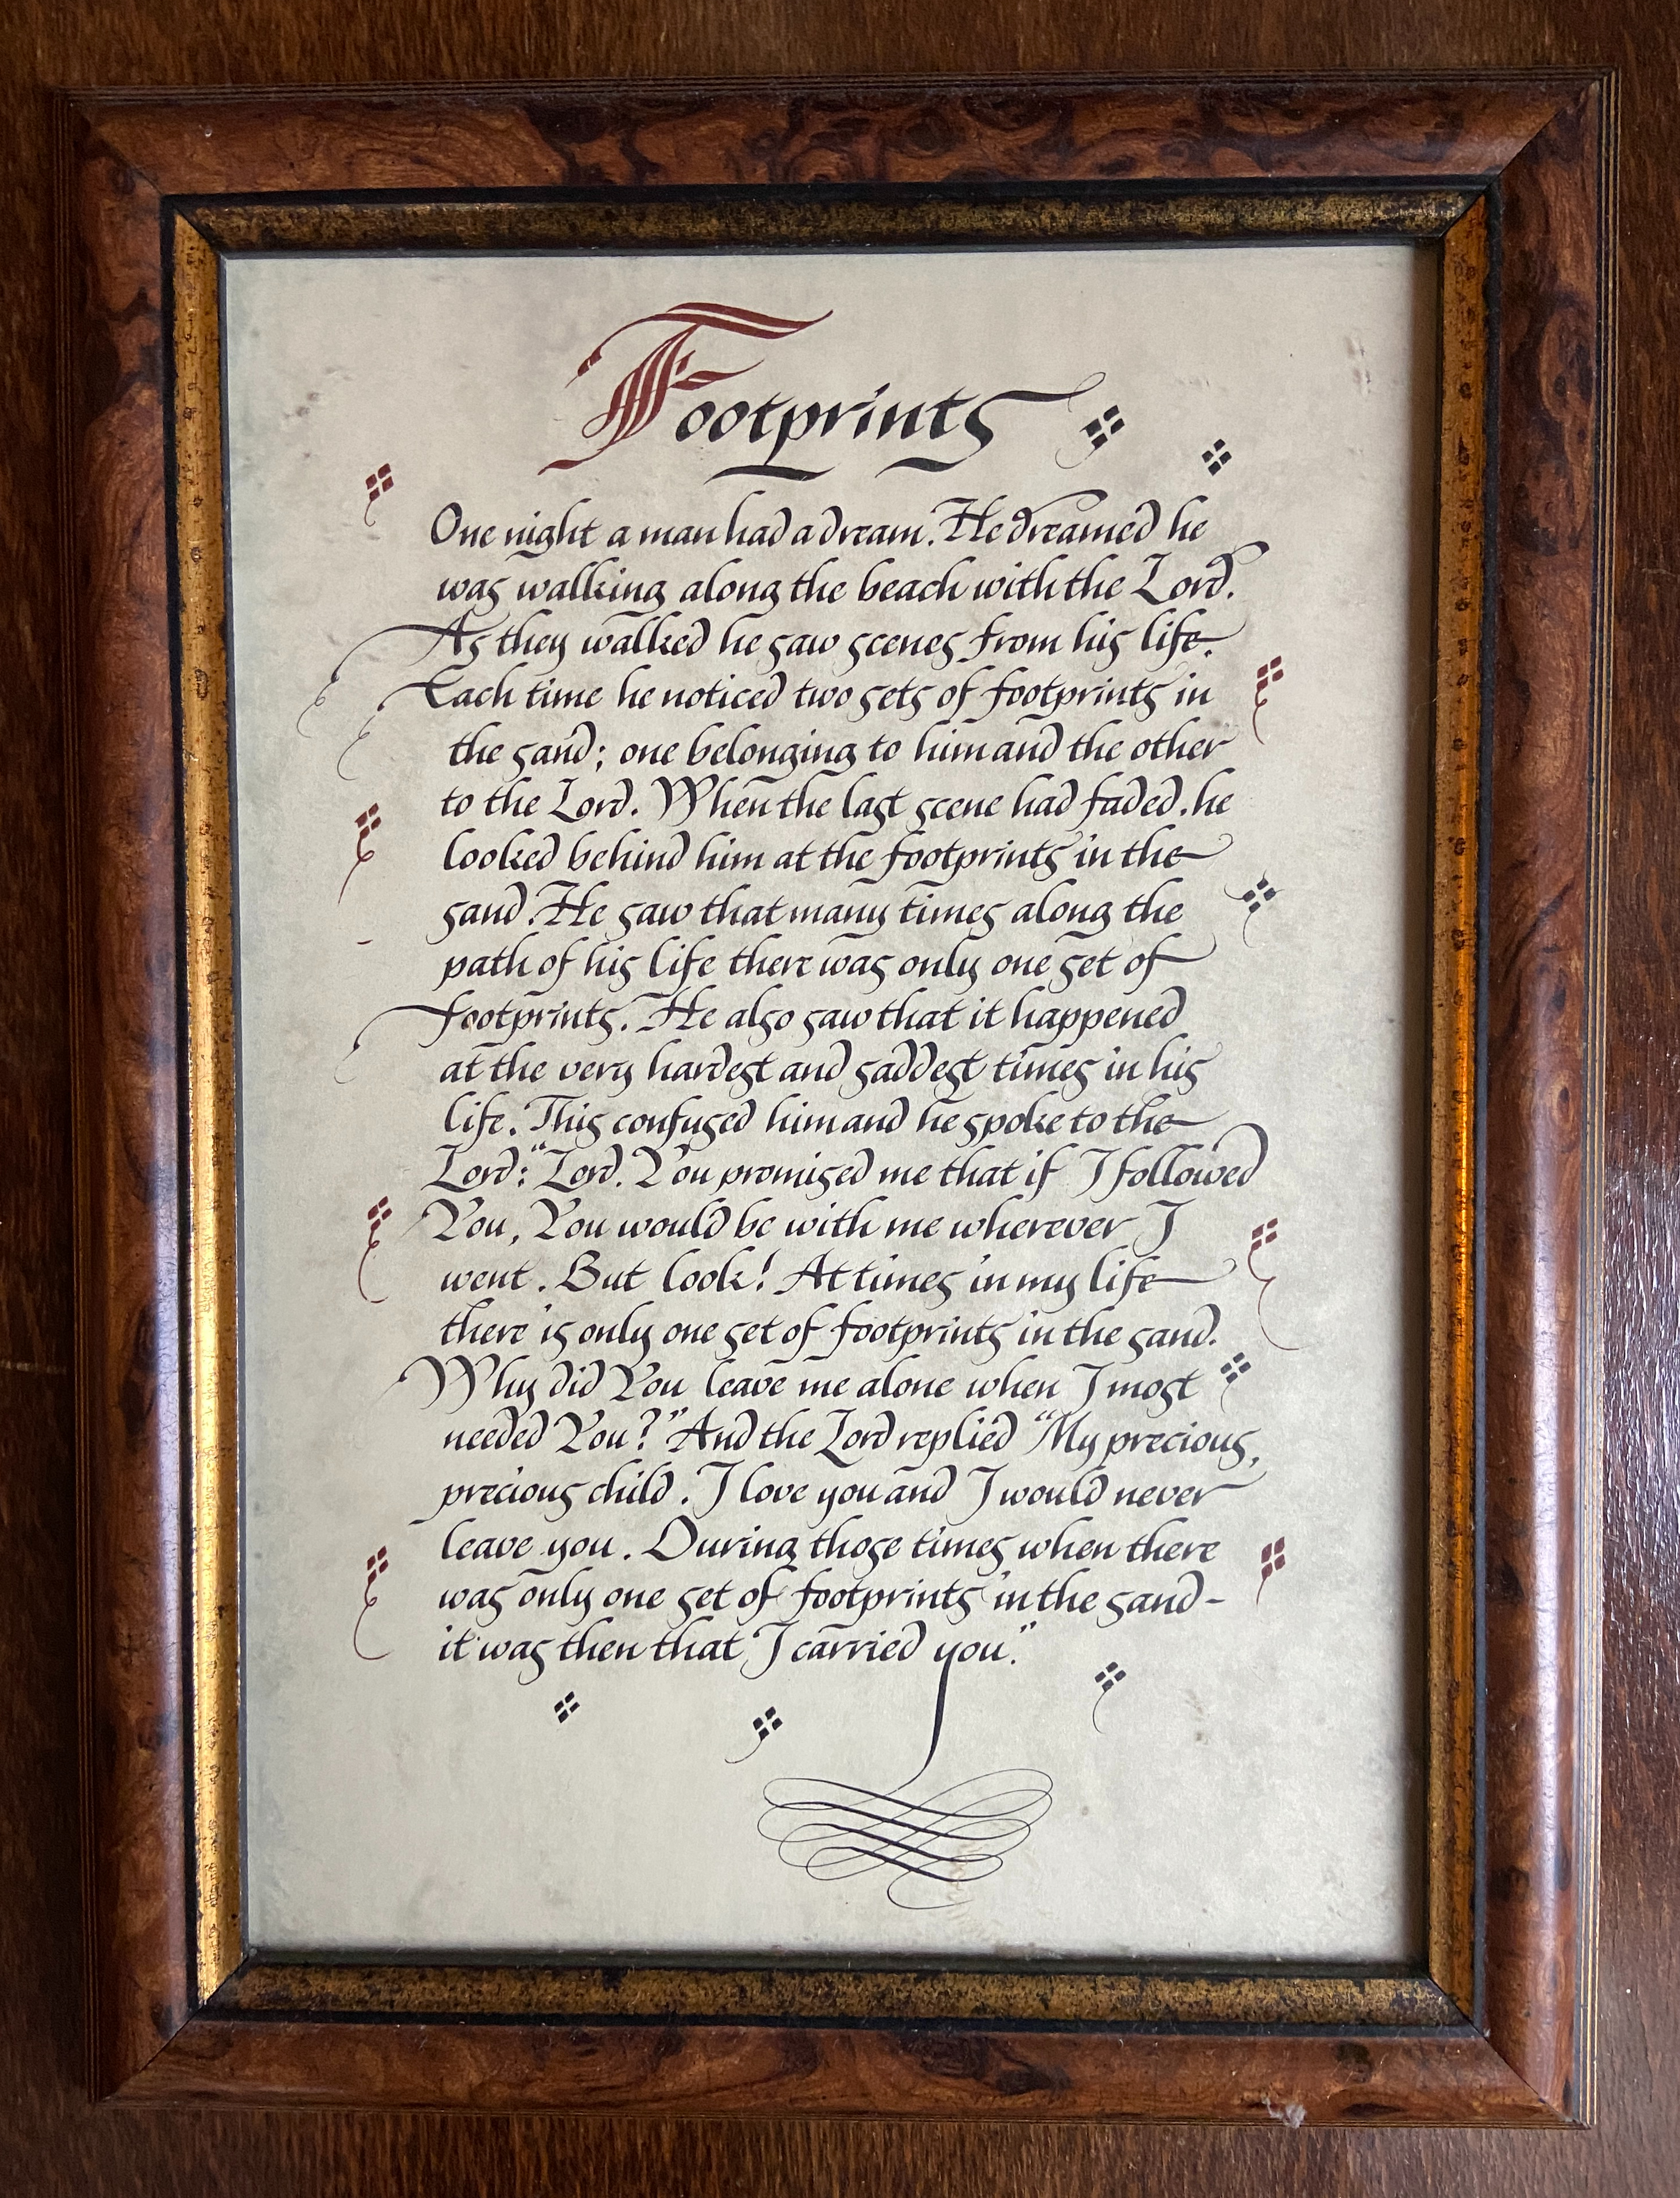 Footprints
One night a man had a dream. He dreamed he
was walking along the beach with the Lord.
As they walked he saw scenes from his life.
Each time he noticed two sets of footprints in
the sand; one belonging to him and the other
to the Lord. When the last scene had faded, he
looked behind him at the footprints in the
sand. He saw that many times along the
path of his life there was only one set of
footprints. He also saw that it happened
at the very hardest and saddest times in his
life. This confused him and he spoke to the
Lord: "Lord. You promised me that if I followed
You, You would be with me wherever I
went. But look! At times in my life
there is only one set of footprints in the sand.
Why did You leave me alone when I most
needed You?" And the Lord replied "My precious,
precious child. I love you and I would never
leave you. During those times when there
was only one set of footprints in the sand-
it was then that I carried you."